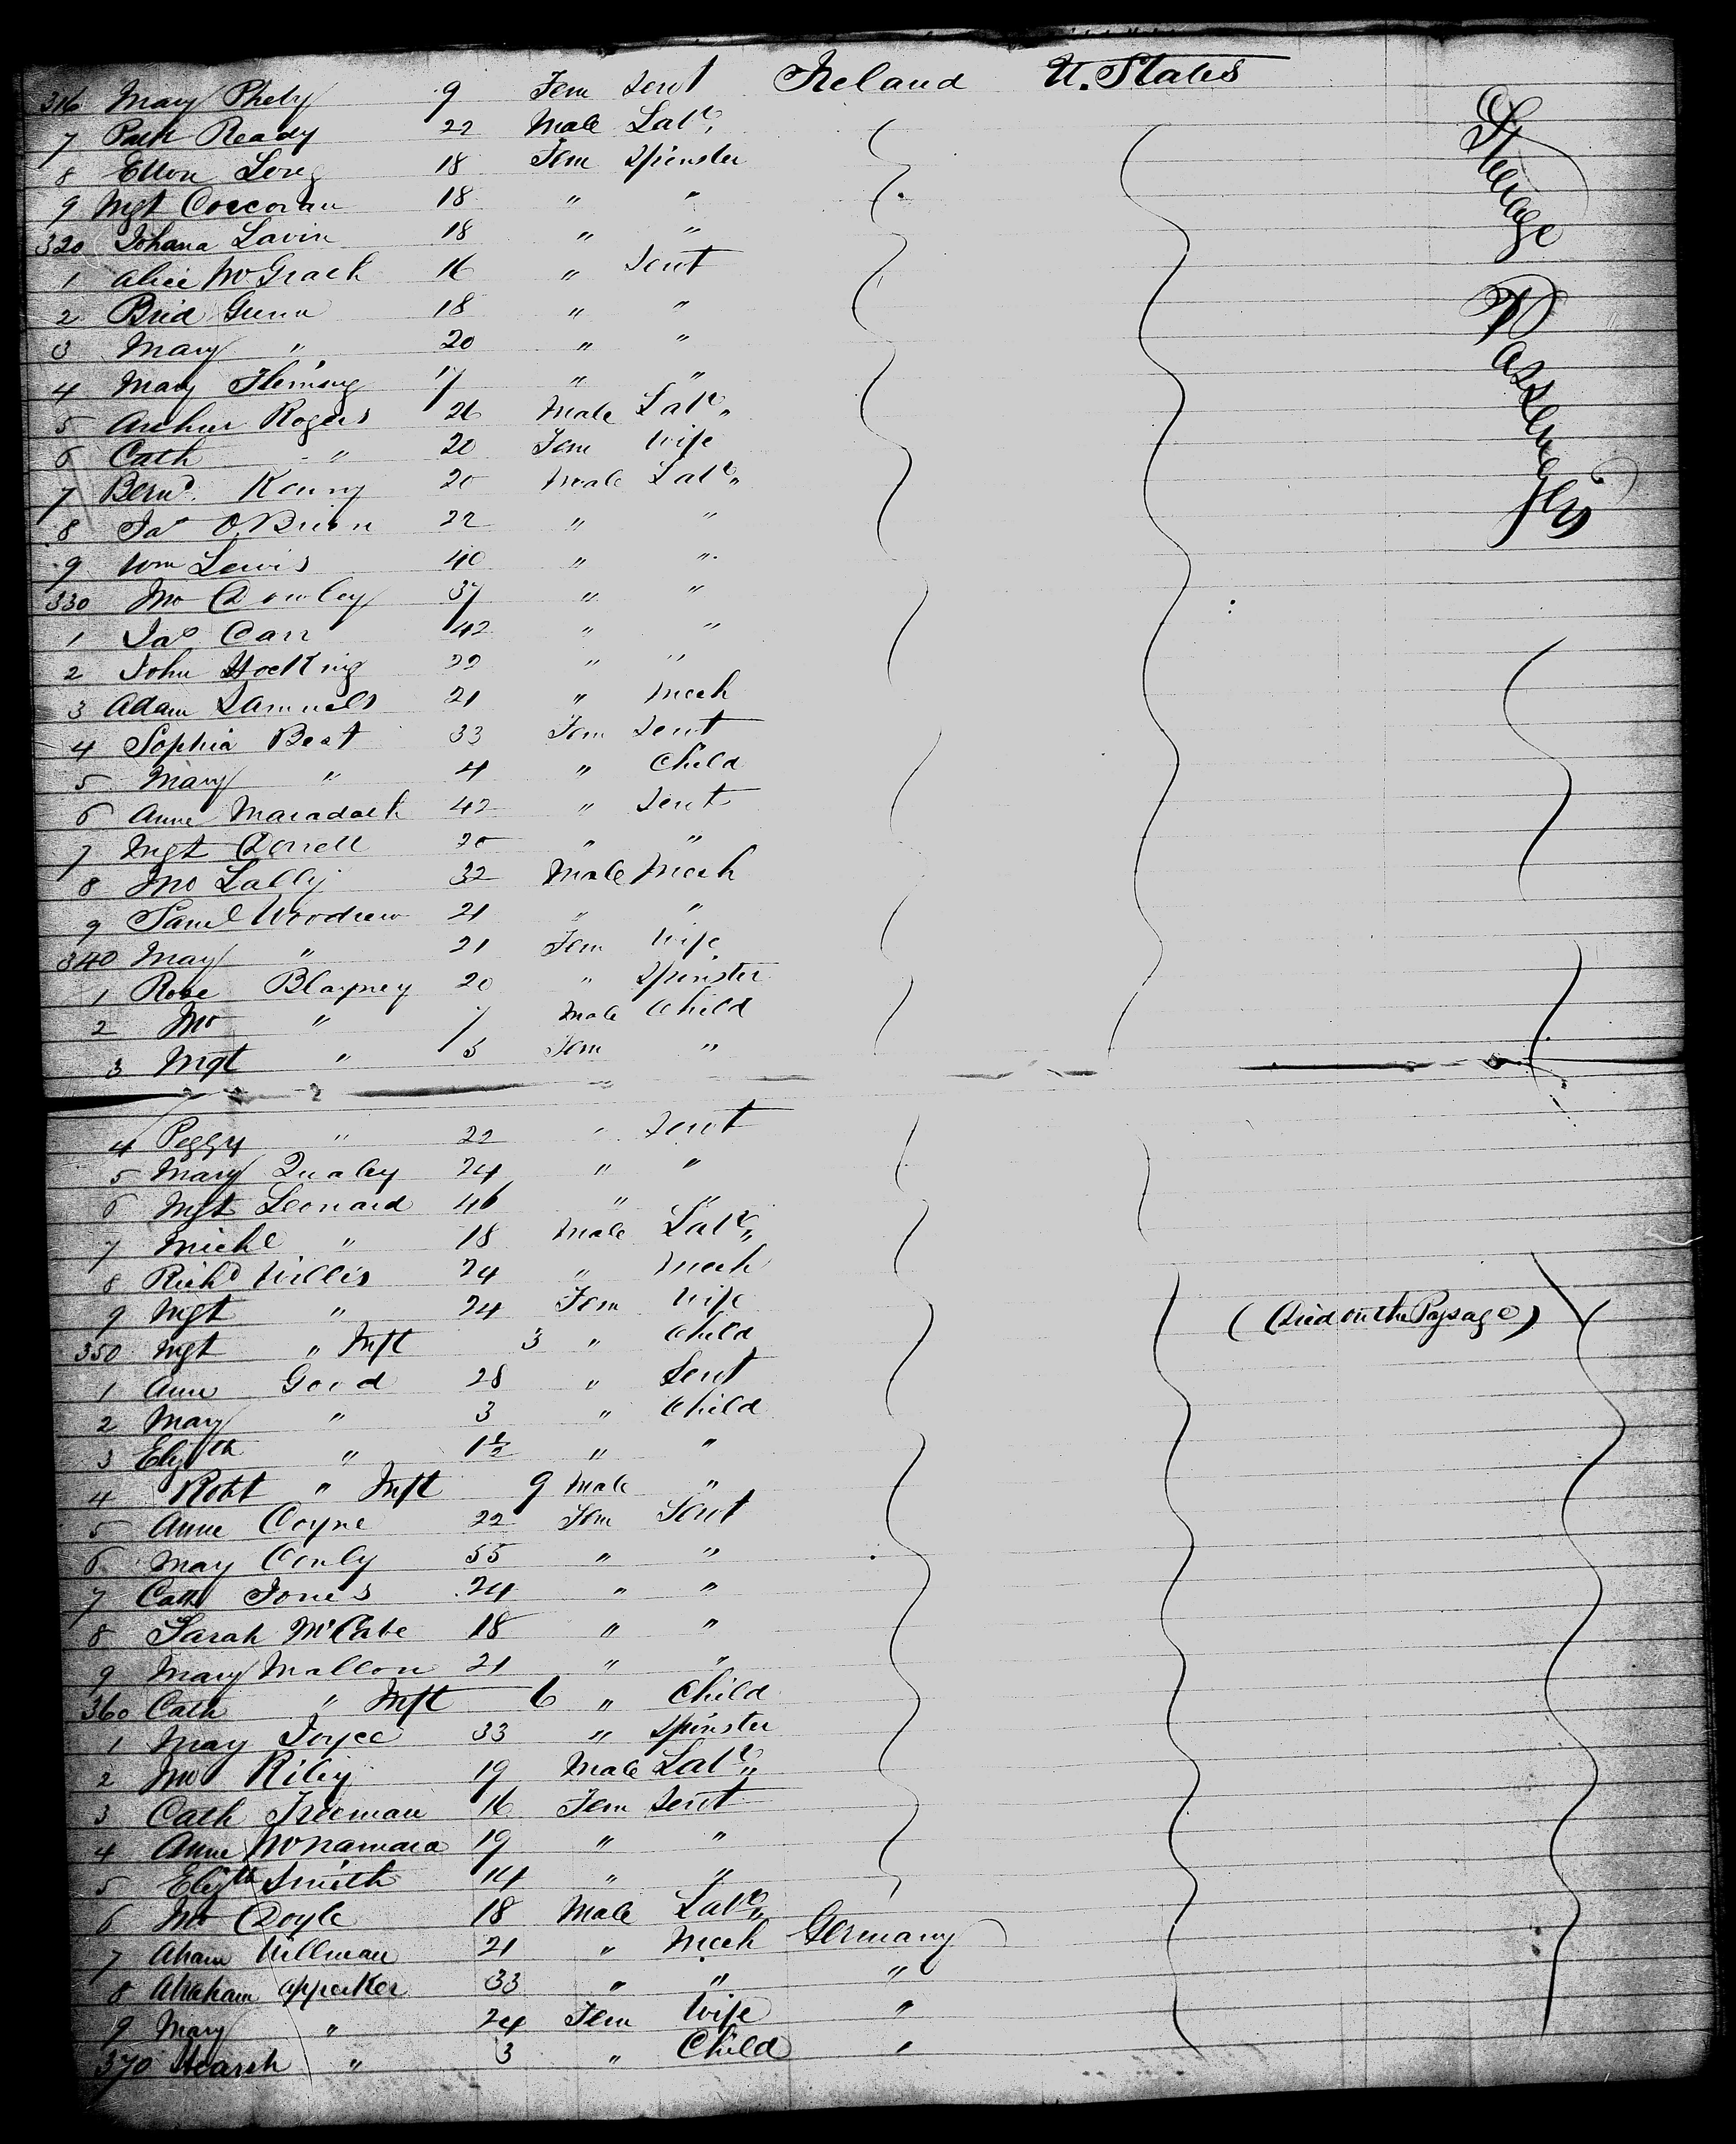 316 Mary Phely 9 Fem Servt Ireland U. States
7 Patk Ready 22 Male Labr
8 Ellen Long 18 Fem Spinster
9 Mgt Corcoran 18 " "
320 Johana Lavin 18 " "
1 Alice McGrath 16 " Servt
2 Brid Gunn 18 " "
3 Mary " 20 " "
4 Mary Fleming 17 " "
5 Arthur Rogers 26 Male Labr
6 Cath " 20 Fem Wife
7 Bernd. Kenny 20 Male Labr
8 Jas OBrien 22 " "
9 Wm Lewis 40 " "
330 Jno Dowley 37 " "
1 Jas Carr 42 " "
2 John Hocking 22 " "
3 Adam Samuels 21 " Mech
4 Sophia Best 33 Fem Servt
5 Mary " 4 " Child
6 Anne 42 " Servt
7 Mgt 20 " "
8 Jno Lally 32 Male Mech
9 Saml Woodrew 21 " "
340 Mary " 21 Fem Wife
1 Rose Blayney 20 " Spinster
2 Jno " 7 Male Child
3 Mgt " 5 Fem "
4 Peggy " 22 " Servt
5 Mary Qualey 24 " "
6 Mgt Leonard 46 " "
7 Michl " 18 Male Labr
8 Richd Willis 24 " Mech
9 Mgt " 24 Fem Wife
350 Mgt " Inft 3 " Child (Died on the Passage)
1 Ann Good 28 " Servt
2 Mary " 3 " Child
3 Elizth " 1½ " "
4 Robt " Inft 9 Male "
5 Anne Coyne 22 Fem Servt
6 May Conly 55 " "
7 Cath Jones 24 " "
8 Sarah McCabe 18 " "
9 Mary Mallon 21 " "
360 Cath " Inft 6 " Child
1 May Joyce 33 " Spinster
2 Jno Riley 19 Male Labr
3 Cath Freeman 16 Fem Servt
4 Anne McNamara 19 " "
5 Elizth Smith 14 " "
6 Jno Doyle 18 Male Labr
7 Aham Ullman 21 " Mech Germany
8 Abraham Appecker 33 " " "
9 Mary " 24 Fem Wife "
370 " 3 " Child "
Steerage Passengers